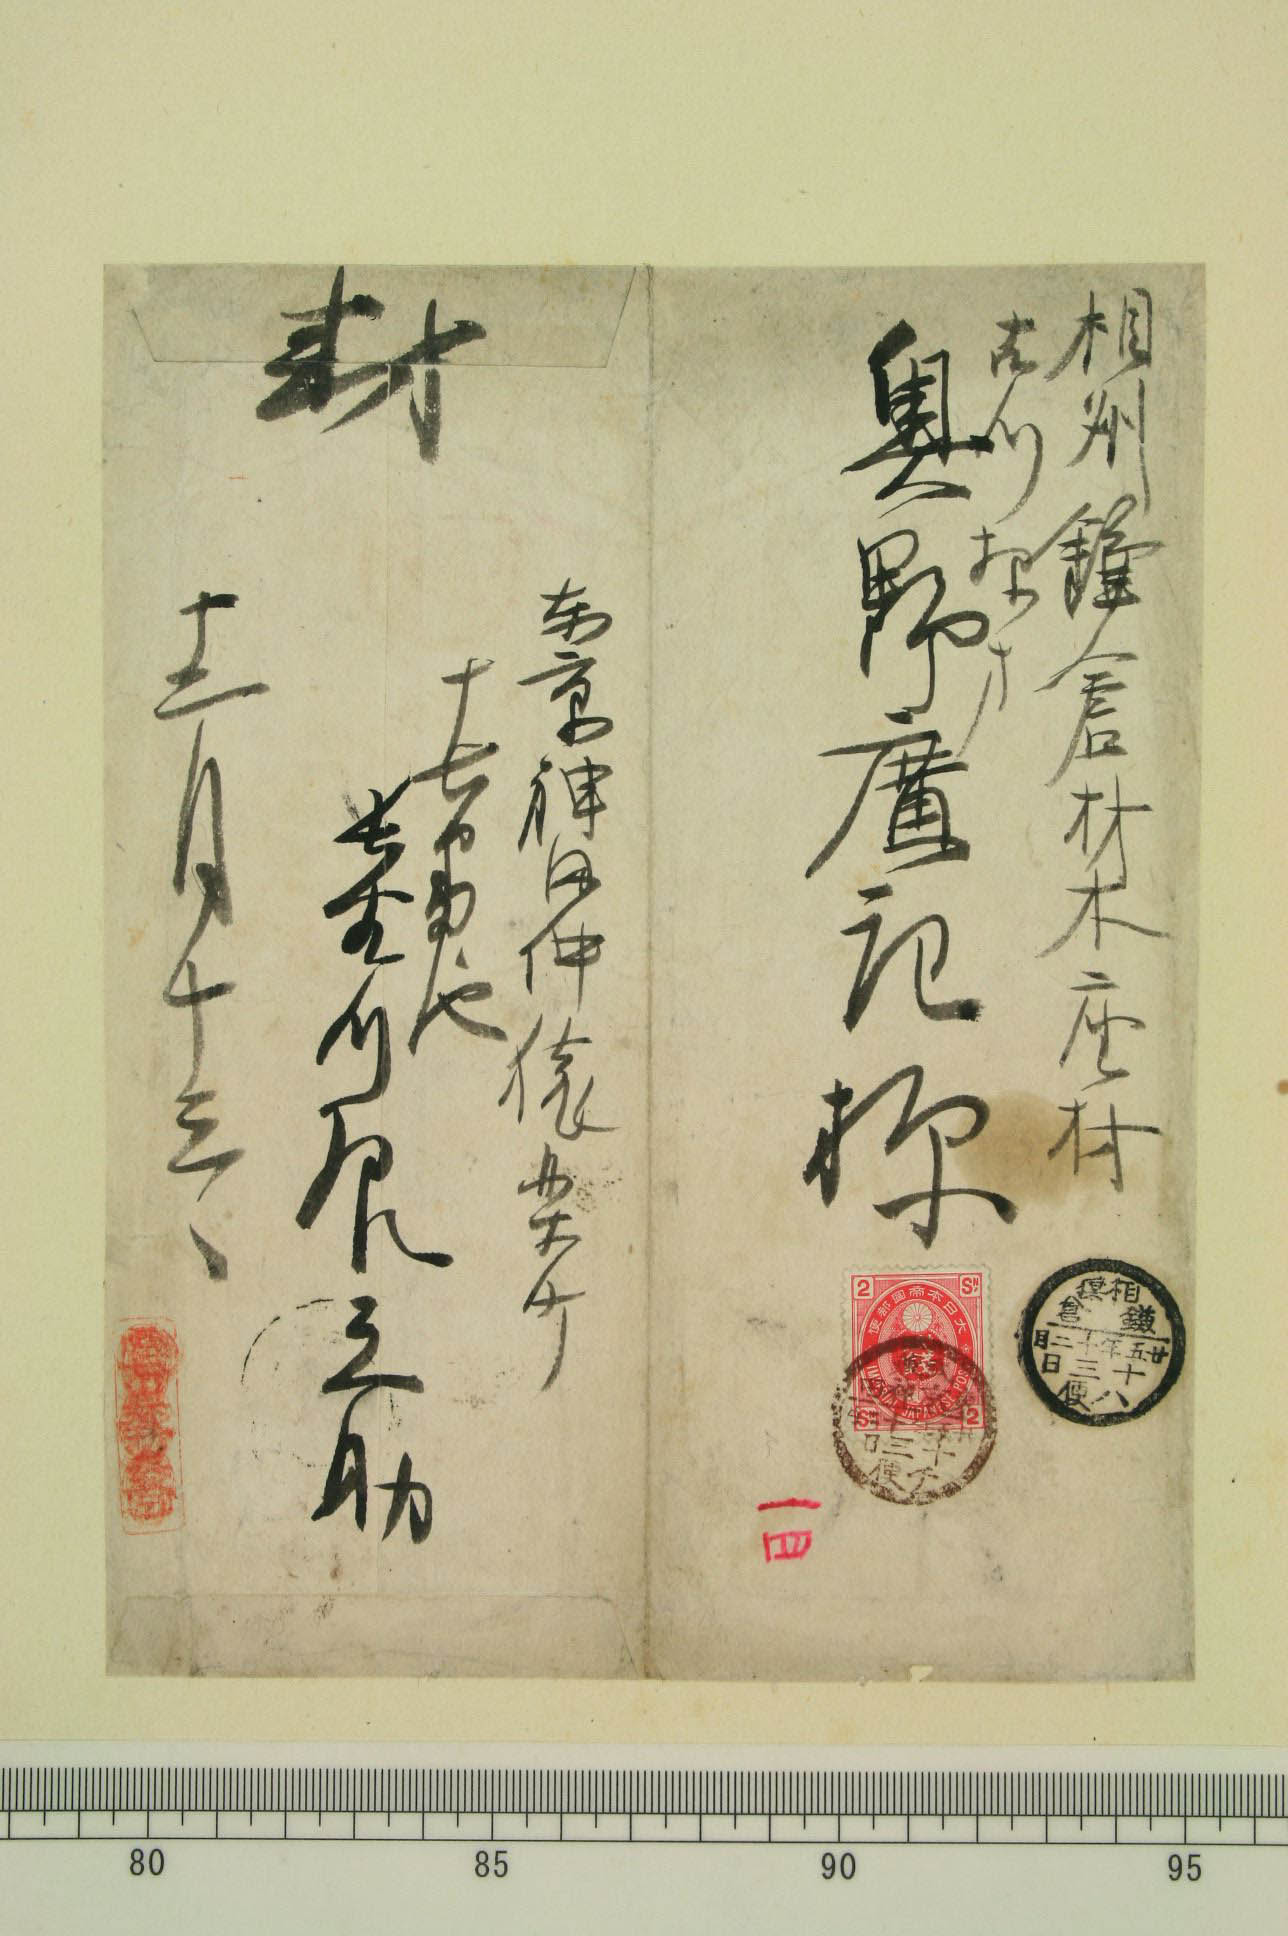 相州鎌倉材木座村
古川
奥野廣記様
相模
鎌倉
廿五年十二月
十三日
八便
2 SN
大日本帝國郵便
IMPERIAL JAPANESE POST
SN 2
三
日
便
一四
封
東京神田仲猿楽丁
十七番地
長谷川辰之助
十二月十三日
80 85 90 95